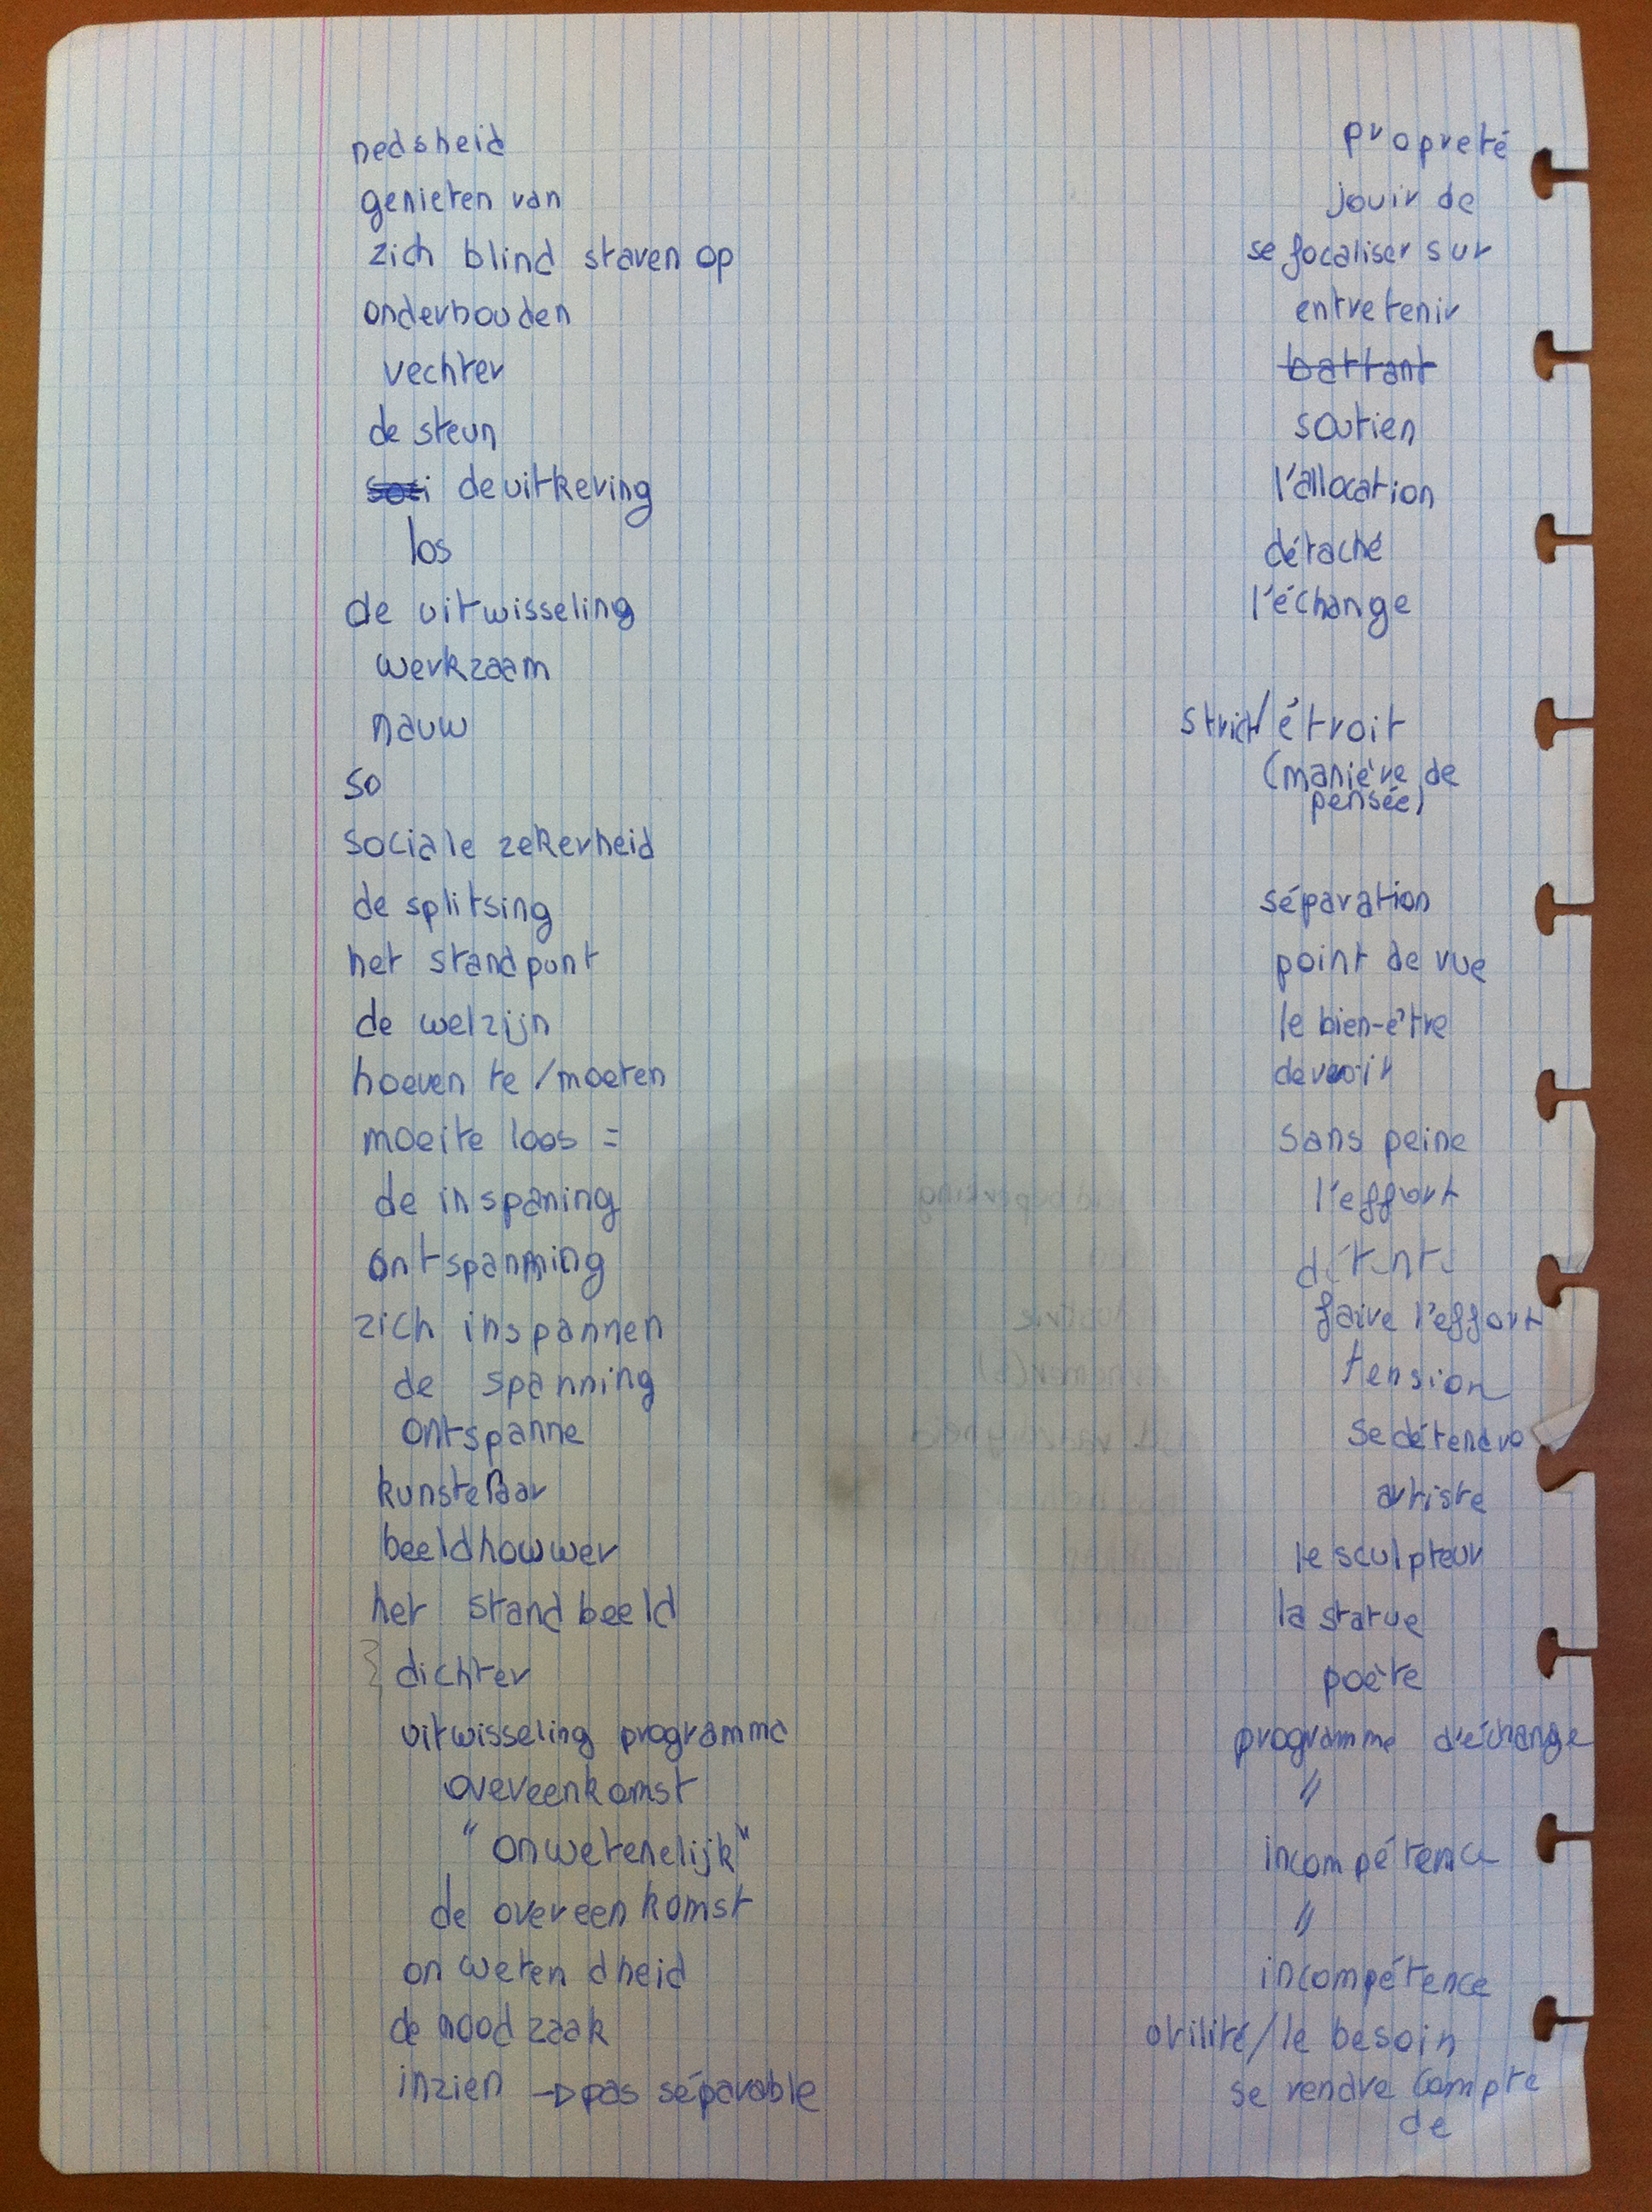 nedsheid propreté
genieten van jouir de
zich blind staren op se focaliser sur
onderhouden entretenir
vechter battant
de steun soutien
soci de uitkering l'allocation
los détaché
de uitwisseling l'échange
werkzaam
nauw strict/étroit
so (manière de
pensée)
sociale zekerheid
de splitsing séparation
het standpunt point de vue
de welzijn le bien-être
hoeven te/moeten devoir
moeite loos = sans peine
de inspaning l'effort
ontspanning
zich inspannen faire l'effort
de spanning tension
ontspanne se détendre
kunstelaar artiste
beeldhowwer le sculpteur
het standbeeld la statue
dichter poète
uitwisseling programma programme d'échange
overeenkomst "
"onwetenelijk" incompétence
de overeenkomst "
onwetendheid incompétence
de noodzaak utilité/le besoin
inzien → pas séparable se rendre compte
de